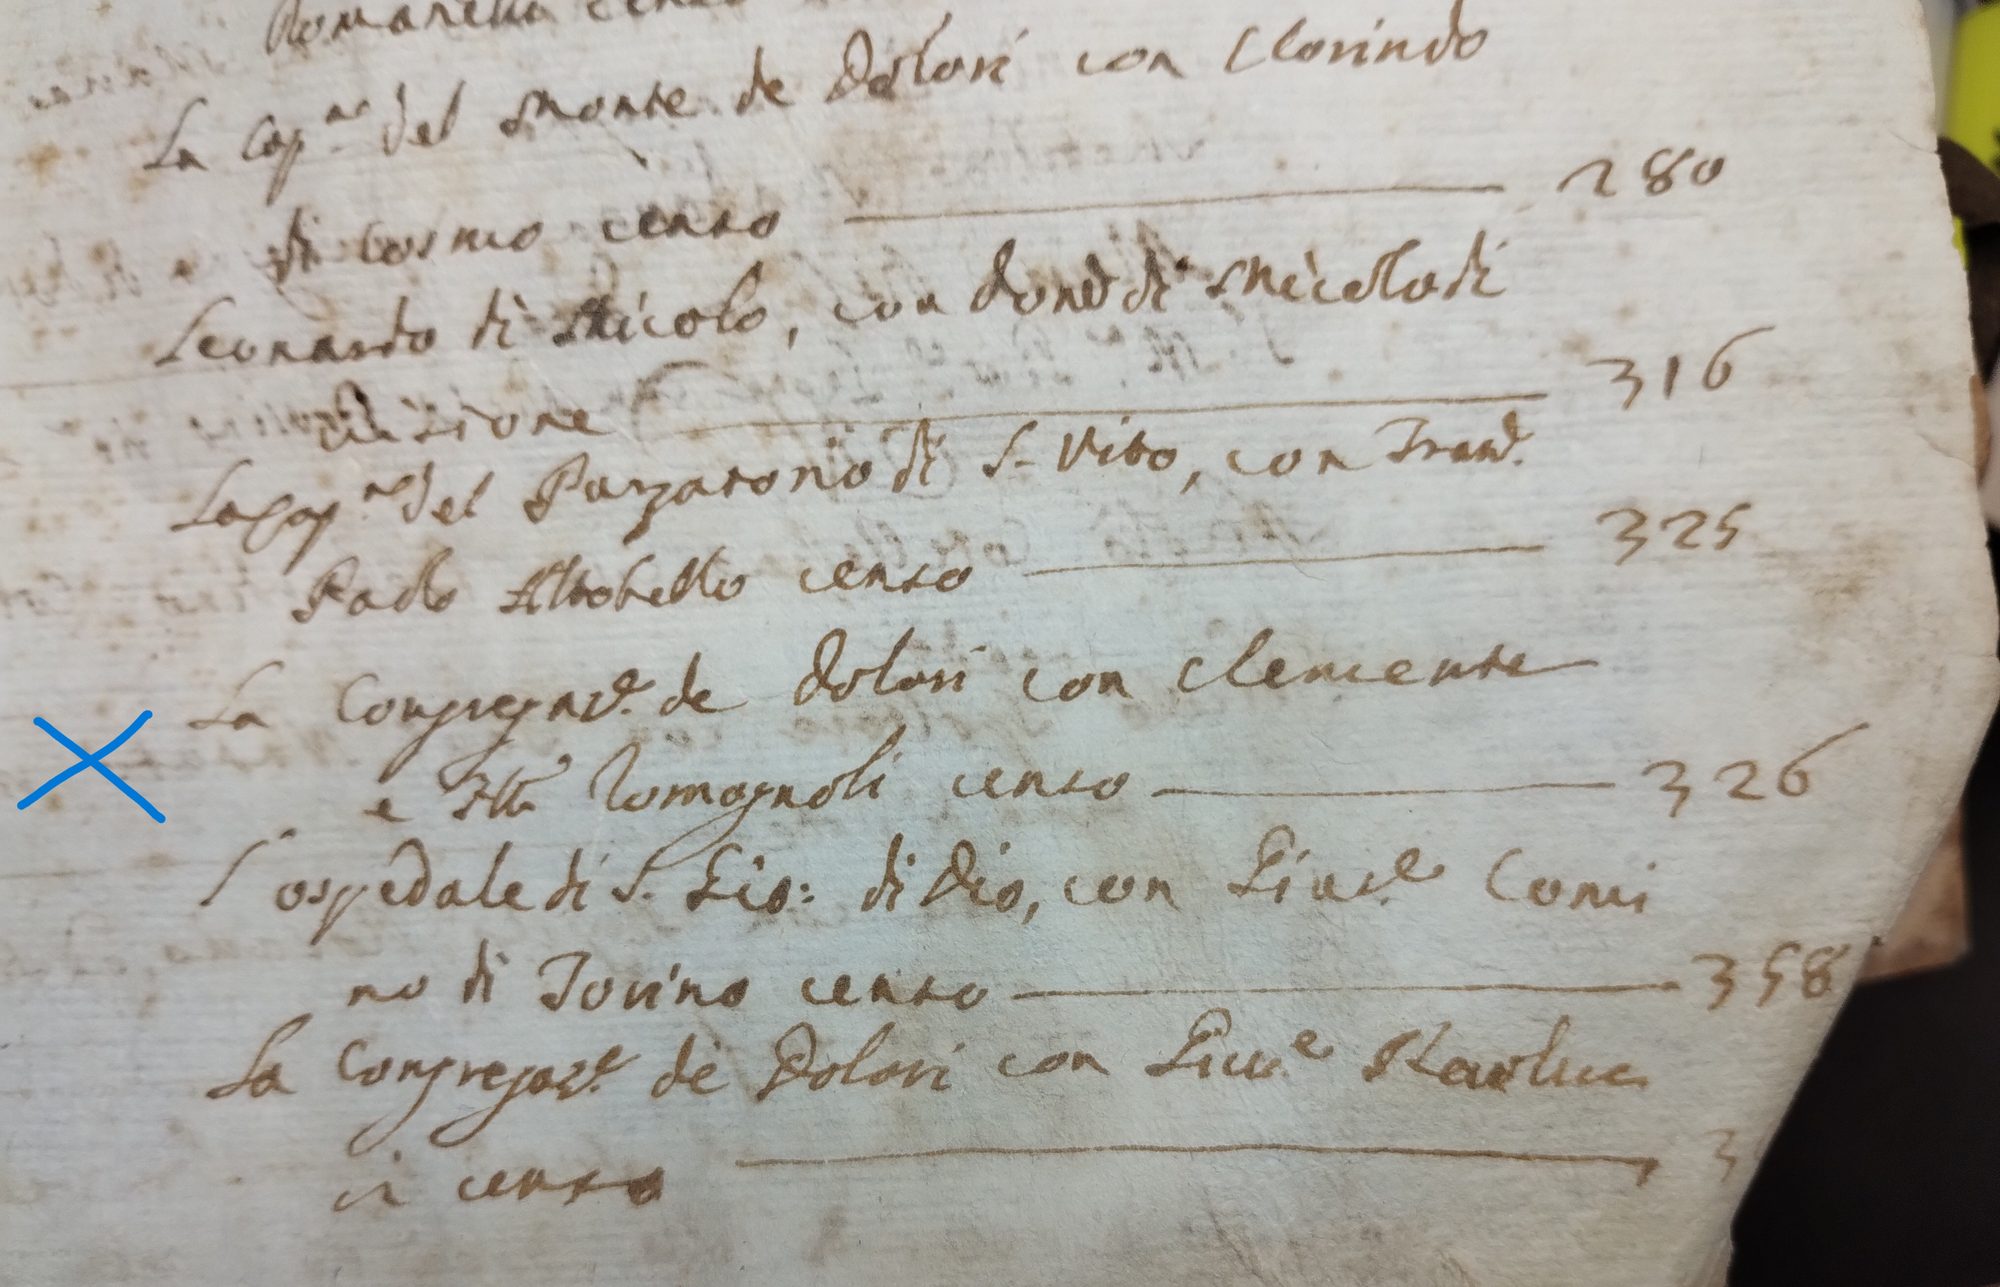 Romanelli censo
La Cap.na del Monte de Dolori con Clorindo
di Cosmo censo 280
Leonardo di Micolo, con Don.to di Micolo di
visione 316
La Cap.na del Purgatorio di S. Vito, con Fran.
Paolo Altobello censo 325
La Congregaz.e de Dolori con Clemente
e Romagnoli censo 326
L'ospedale di S. Gio: di Dio, con Gius.e Comi
no di Iorino censo 358
La Congregaz.e de Dolori con Gius.e
ci censo 3